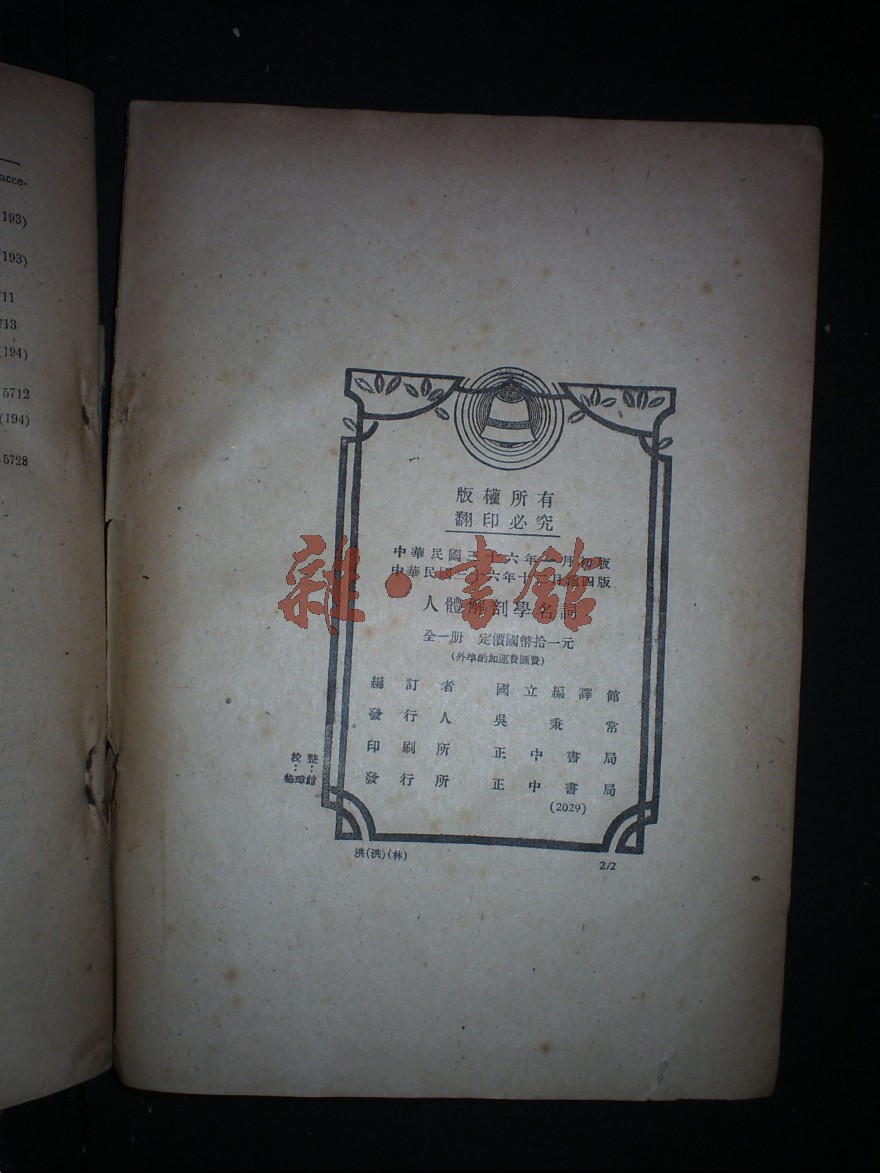 acce-
193)
(193)
711
713
(194)
5712
(194)
5728
版權所有
翻印必究
中華民國三十六年 月初版
中華民國三十六年十 月 四版
人體解剖學名詞
全一册 定價國幣拾一元
(外埠酌加運費匯費)
編訂者 國立編譯館
發行人 吳秉常
印刷所 正中書局
發行所 正中書局
(2029)
校 整
: :
梅璋 館
洪(洪)(林)
2/2
雜·書館